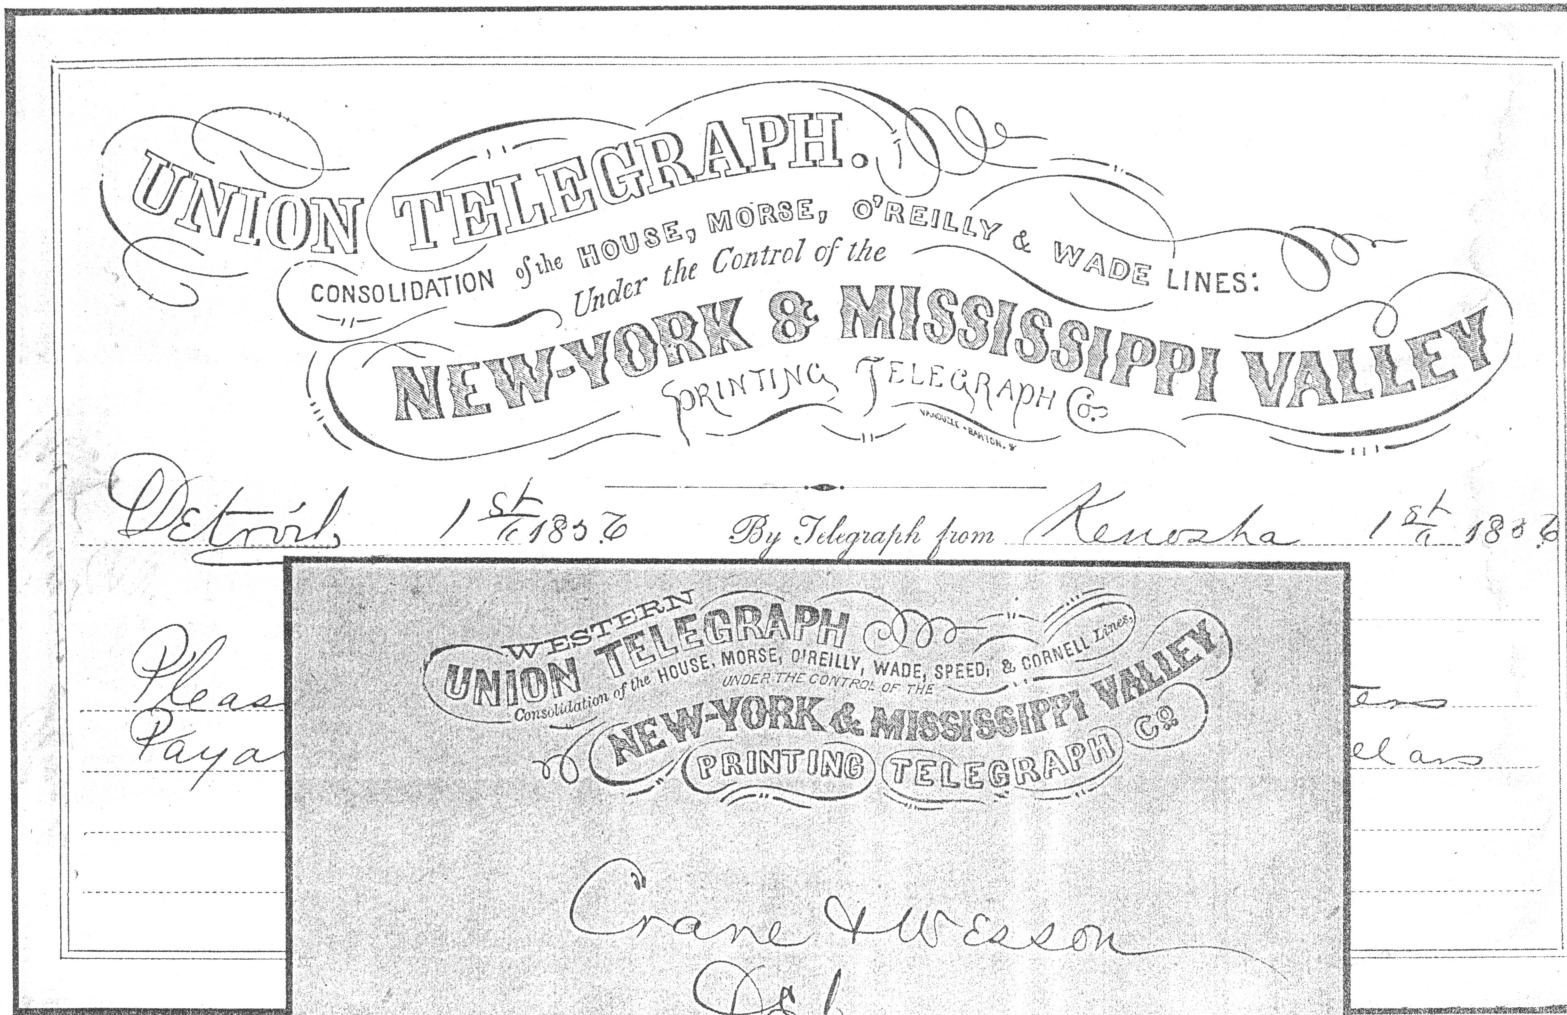 UNION TELEGRAPH.
CONSOLIDATION of the HOUSE, MORSE, O'REILLY & WADE LINES:
Under the Control of the
NEW-YORK & MISSISSIPPI VALLEY
PRINTING TELEGRAPH Co.
Detroit 1st 1856 By Telegraph from Kenosha 1st 1856
WESTERN
UNION TELEGRAPH
Consolidation of the HOUSE, MORSE, O'REILLY, WADE, SPEED, & CORNELL Lines.
UNDER THE CONTROL OF THE
NEW-YORK & MISSISSIPPI VALLEY
PRINTING TELEGRAPH Co.
Pleas
Paya
Crane & Wesson